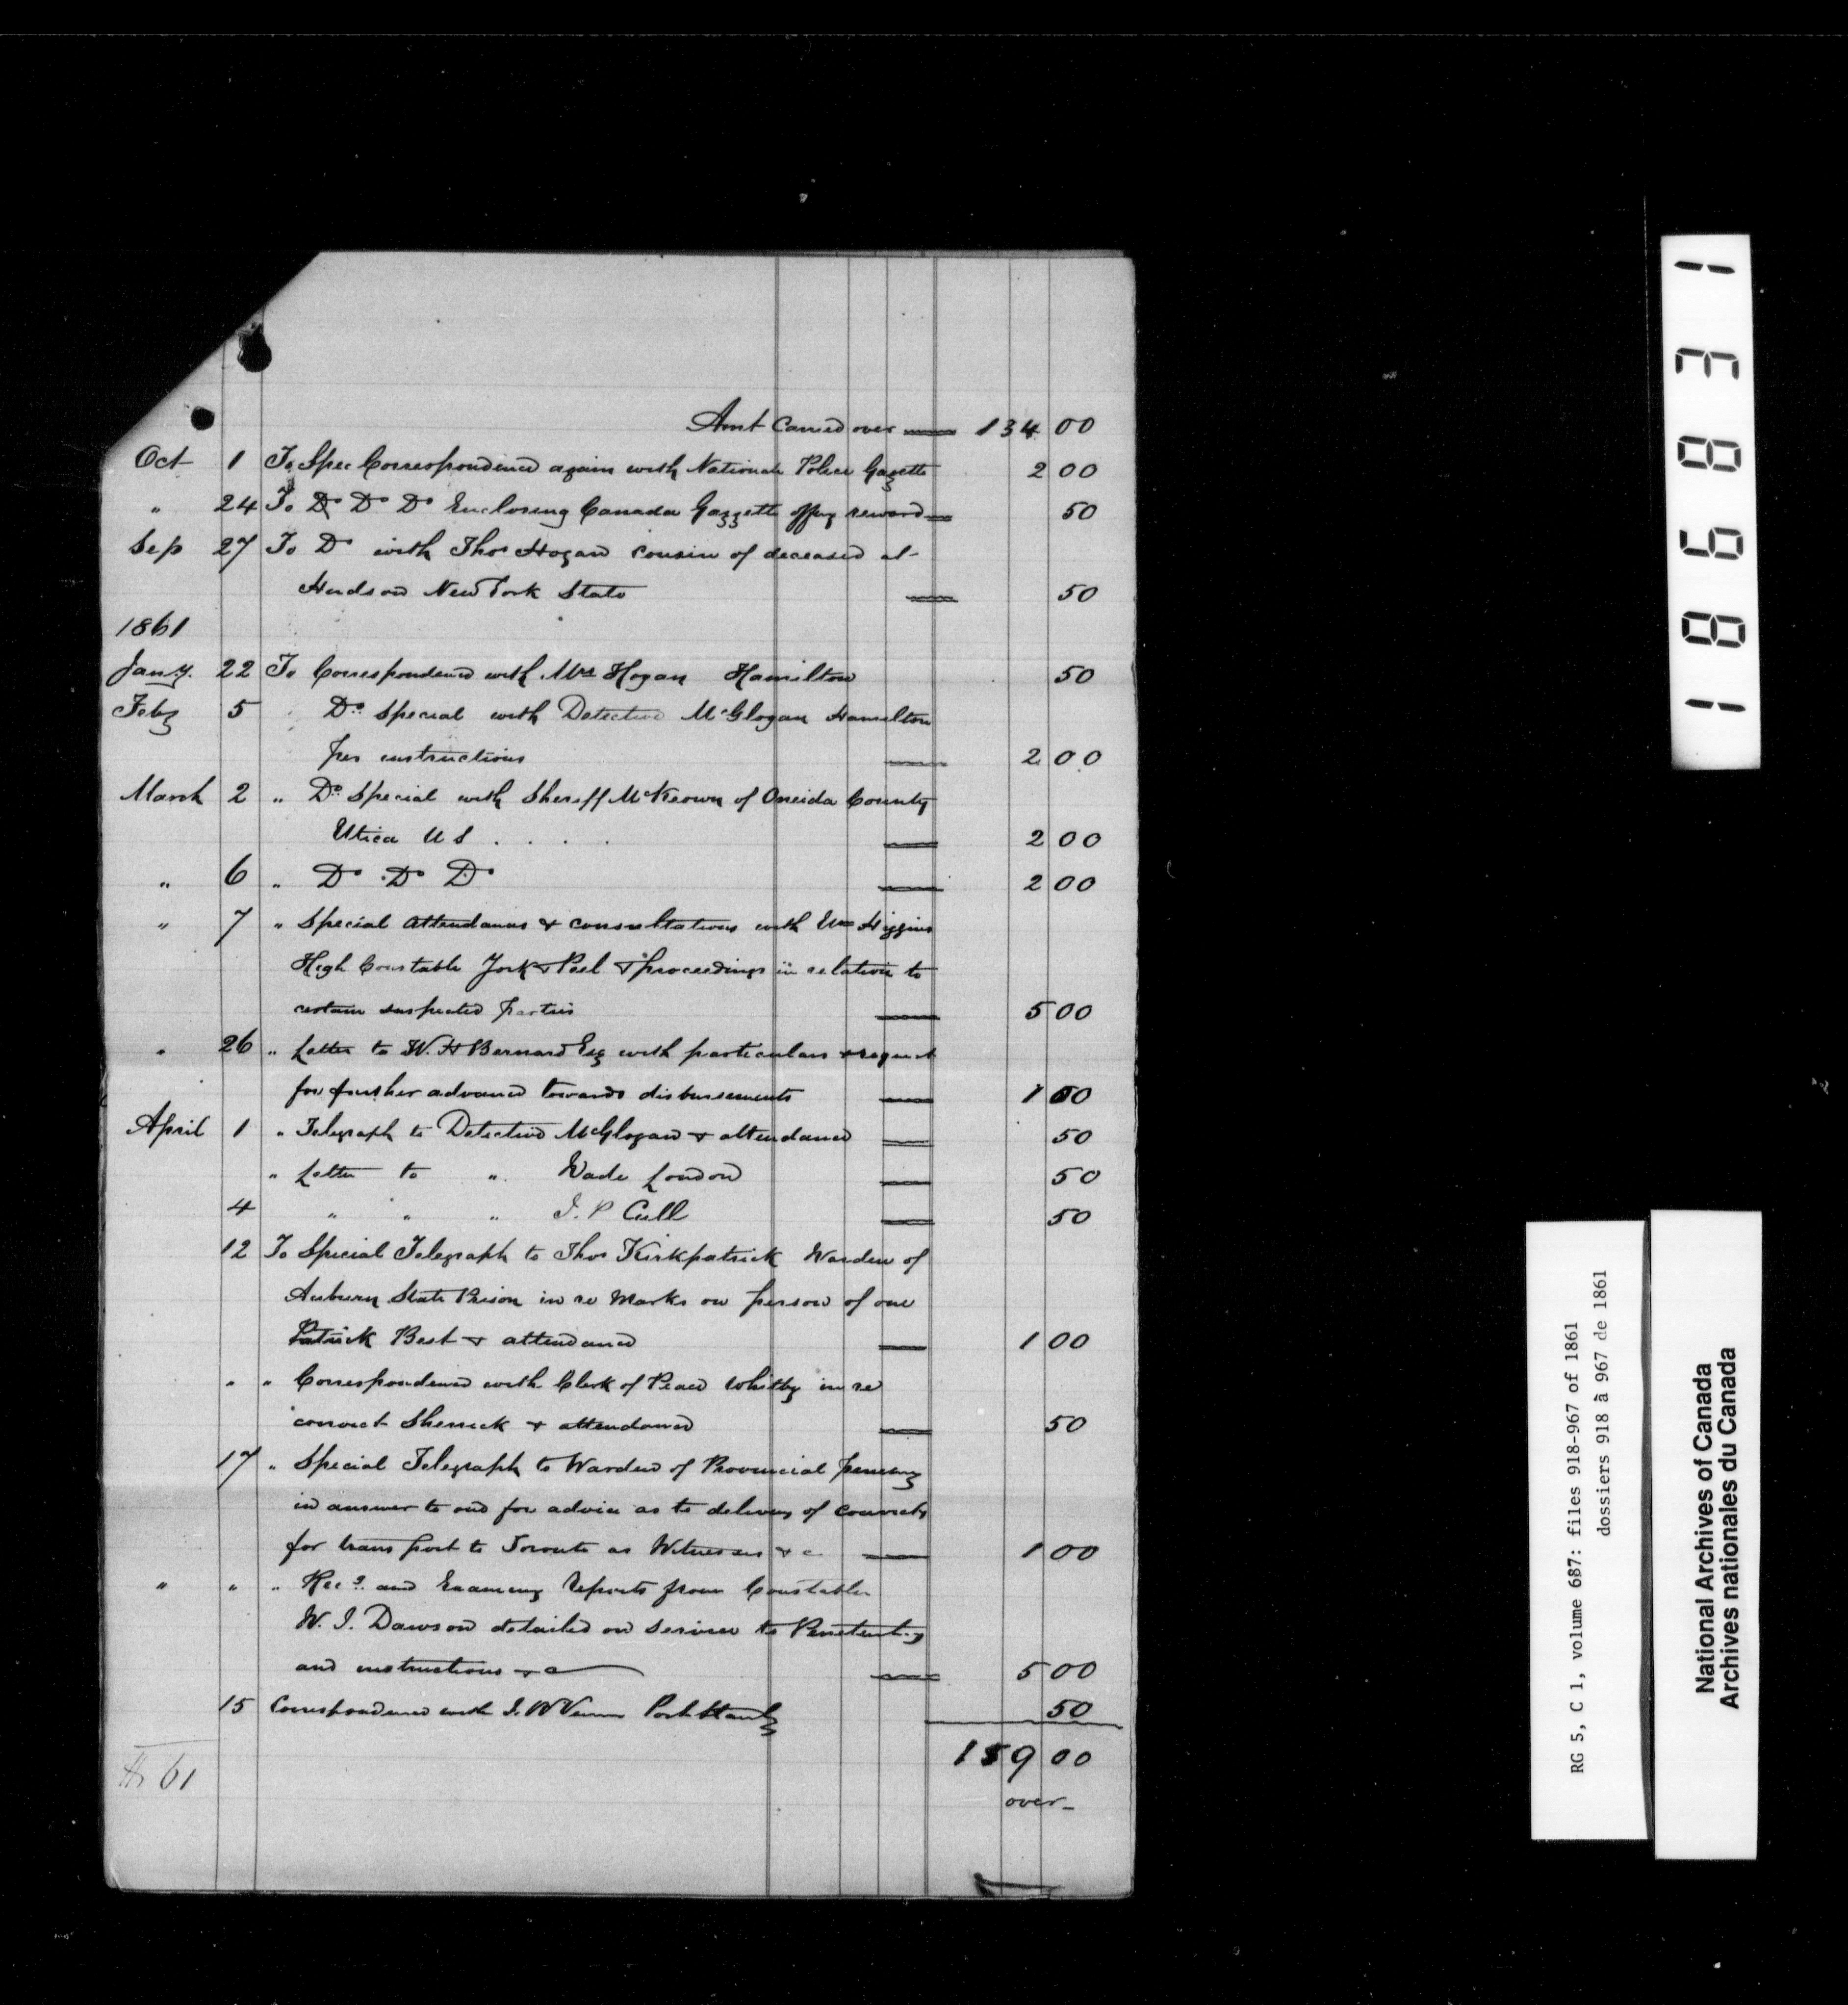 Amt Carried over 134 00
Oct 1 To Spec Correspondence again with National Police Gazette 2 00
" 24 To Do Do Do Enclosing Canada Gazzette offg reward 50
Sep 27 To Do with Thos Hogan cousin of deceased at
Hudson New York State 50
1861
Jany. 22 To Correspondence with Mrs Hogan Hamilton 50
Feby 5 Do Special with Detective McGlogan Hamilton
per instructions 2 00
March 2 " Do Special with Sheriff McKeown of Oneida County
Utica U S . . . . 2 00
" 6 " Do Do Do 2 00
" 7 " Special attendances & consultations with Wm Higgins
High Constable York & Peel & proceedings in relation to
certain suspected parties 5 00
" 26 " Letter to W. H Bernard Esq with particulars & request
for further advance towards disbursements 1 00
April 1 " Telegraph to Detective McGlogan & attendance 50
" Letter to " Wade London 50
4 " " " J. P Cull 50
12 To Special Telegraph to Thos Kirkpatrick Warden of
Auburn State Prison in re Marks on person of one
Patrick Best & attendance 1 00
" " Correspondence with Clerk of Peace Whitby in re
convict Sherrick & attendance 50
17 " Special Telegraph to Warden of Provincial
in answer to one for advice as to delivery of convicts
for transport to Toronto as Witnesses &c 1 00
" " " Recg and Examing Reports from Constable
W. J. Dawson detailed on service to Penitenty
and instructions &c 5 00
15 Correspondence with J. W 50
159 00
over
61
186831
RG 5, C 1, volume 687: files 918-967 of 1861
dossiers 918 à 967 de 1861
National Archives of Canada
Archives nationales du Canada